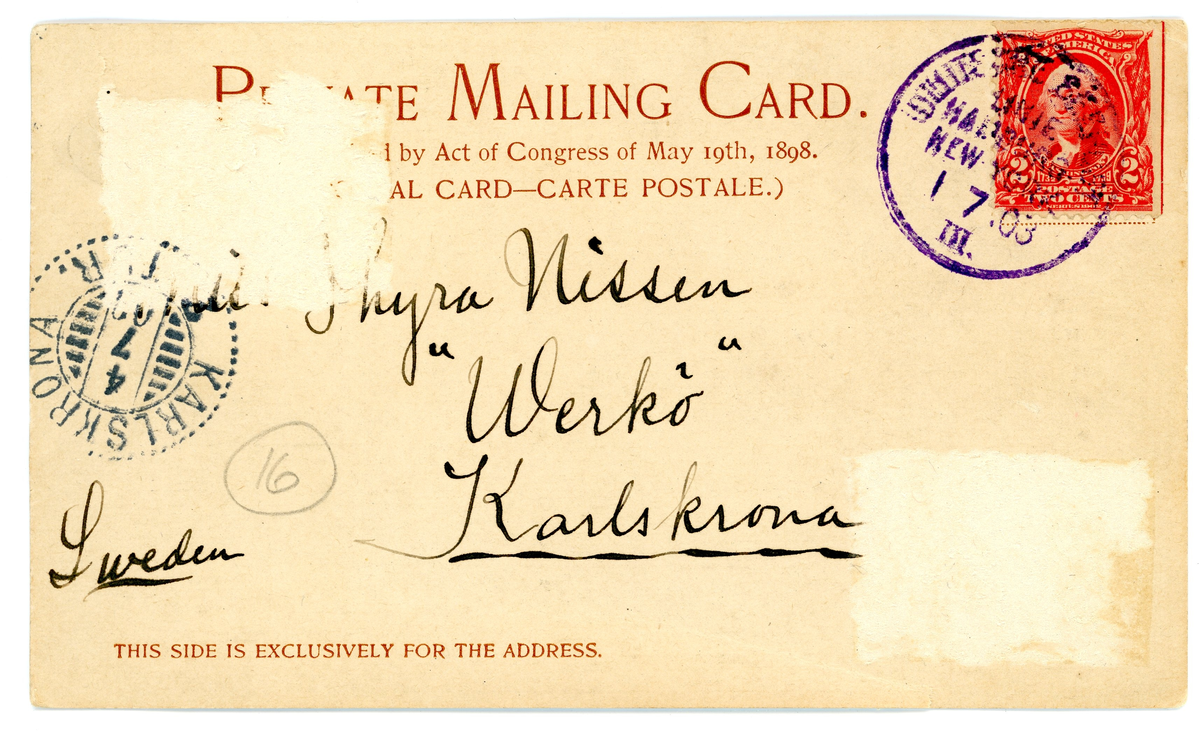 PRIVATE MAILING CARD.
d by Act of Congress of May 19th, 1898.
AL CARD—CARTE POSTALE.)
UNITED STATES
OF AMERICA
2 2
TWO CENTS
SERIES 1902
NEW
1 7 03
III.
KARLSKRONA
T.R.
4
7
03
Thyra Nissen
"Werkö"
Karlskrona
16
Sweden
THIS SIDE IS EXCLUSIVELY FOR THE ADDRESS.